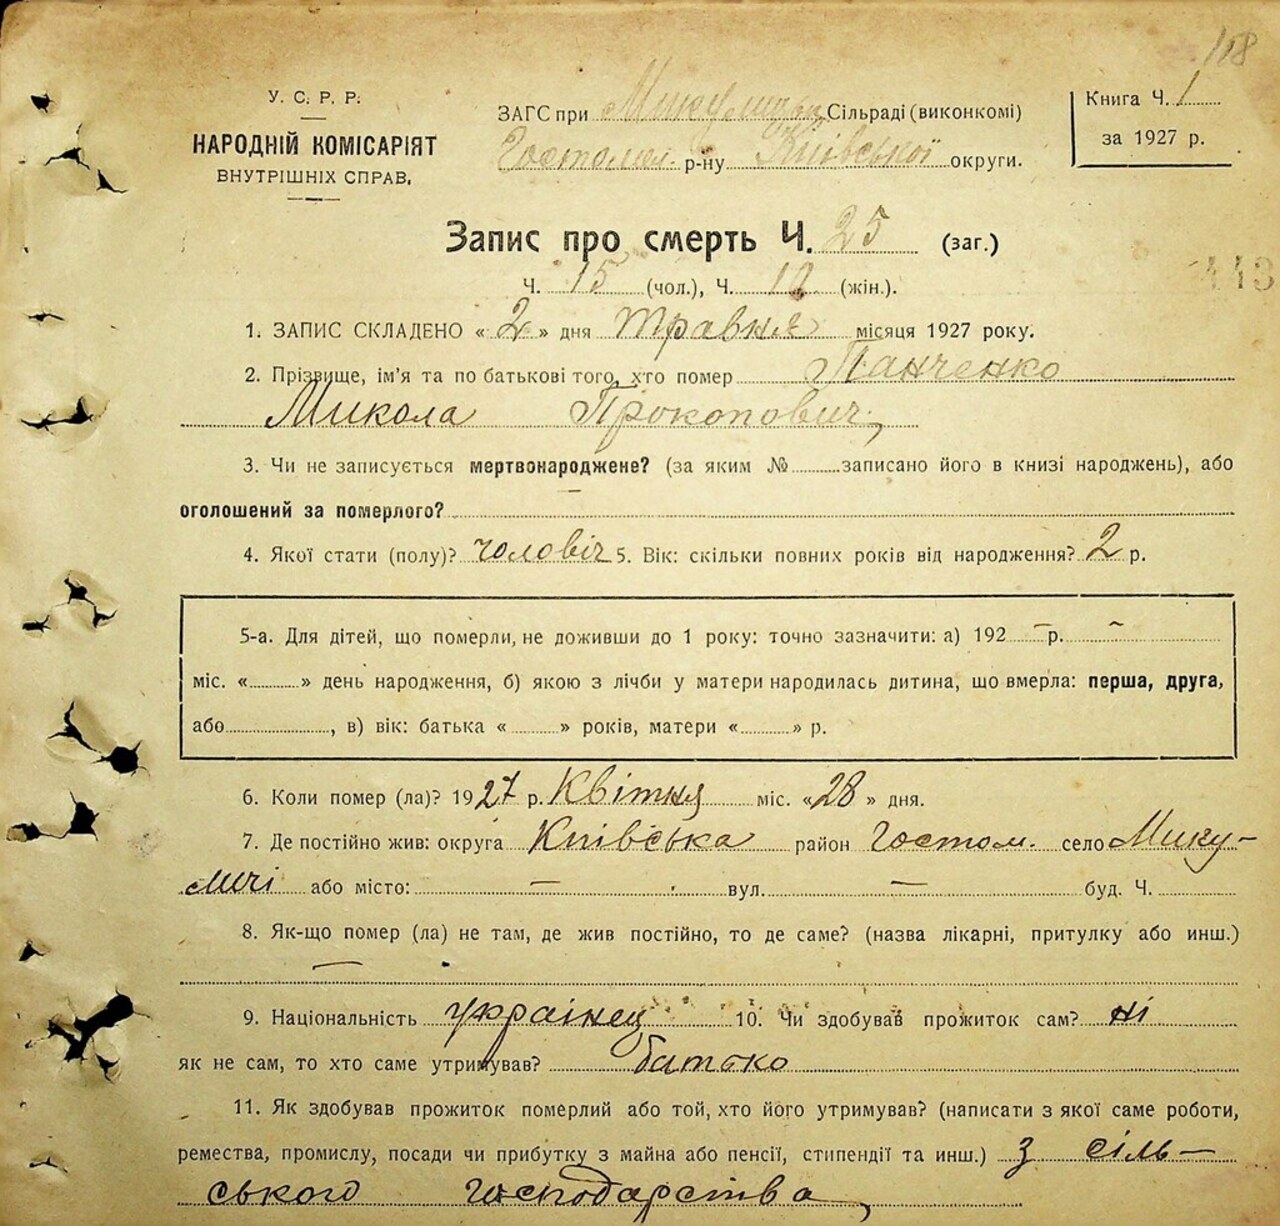 118
У. С. Р. Р.
НАРОДНІЙ КОМІСАРІЯТ
ВНУТРІШНІХ СПРАВ.
ЗАГС при Сільраді (виконкомі)
Гостомел. р-ну Київської округи.
Книга Ч. 1
за 1927 р.
Запис про смерть Ч. 25 (заг.)
443
Ч. 15 (чол.), Ч. (жін.).
1. ЗАПИС СКЛАДЕНО « 2 » дня травня місяця 1927 року.
2. Прізвище, ім'я та по батькові того, хто помер Панченко
Микола Прокопович,
3. Чи не записується мертвонароджене? (за яким № записано його в книзі народжень), або
оголошений за померлого?
4. Якої стати (полу)? чоловіч 5. Вік: скільки повних років від народження? 2 р.
5-а. Для дітей, що померли, не доживши до 1 року: точно зазначити: а) 192 – р. –
міс. « » день народження, б) якою з лічби у матери народилась дитина, що вмерла: перша, друга,
або , в) вік: батька « » років, матери « » р.
6. Коли помер (ла)? 1927 р. Квітня міс. «28» дня.
7. Де постійно жив: округа Київська район Гостом. село Мику-
личі або місто: — вул. — буд. Ч.
8. Як-що помер (ла) не там, де жив постійно, то де саме? (назва лікарні, притулку або инш.)
—
9. Національність українец 10. Чи здобував прожиток сам? ні
як не сам, то хто саме утримував? батько
11. Як здобував прожиток померлий або той, хто його утримував? (написати з якої саме роботи,
ремества, промислу, посади чи прибутку з майна або пенсії, стипендії та инш.) з сіль-
ського господарства,